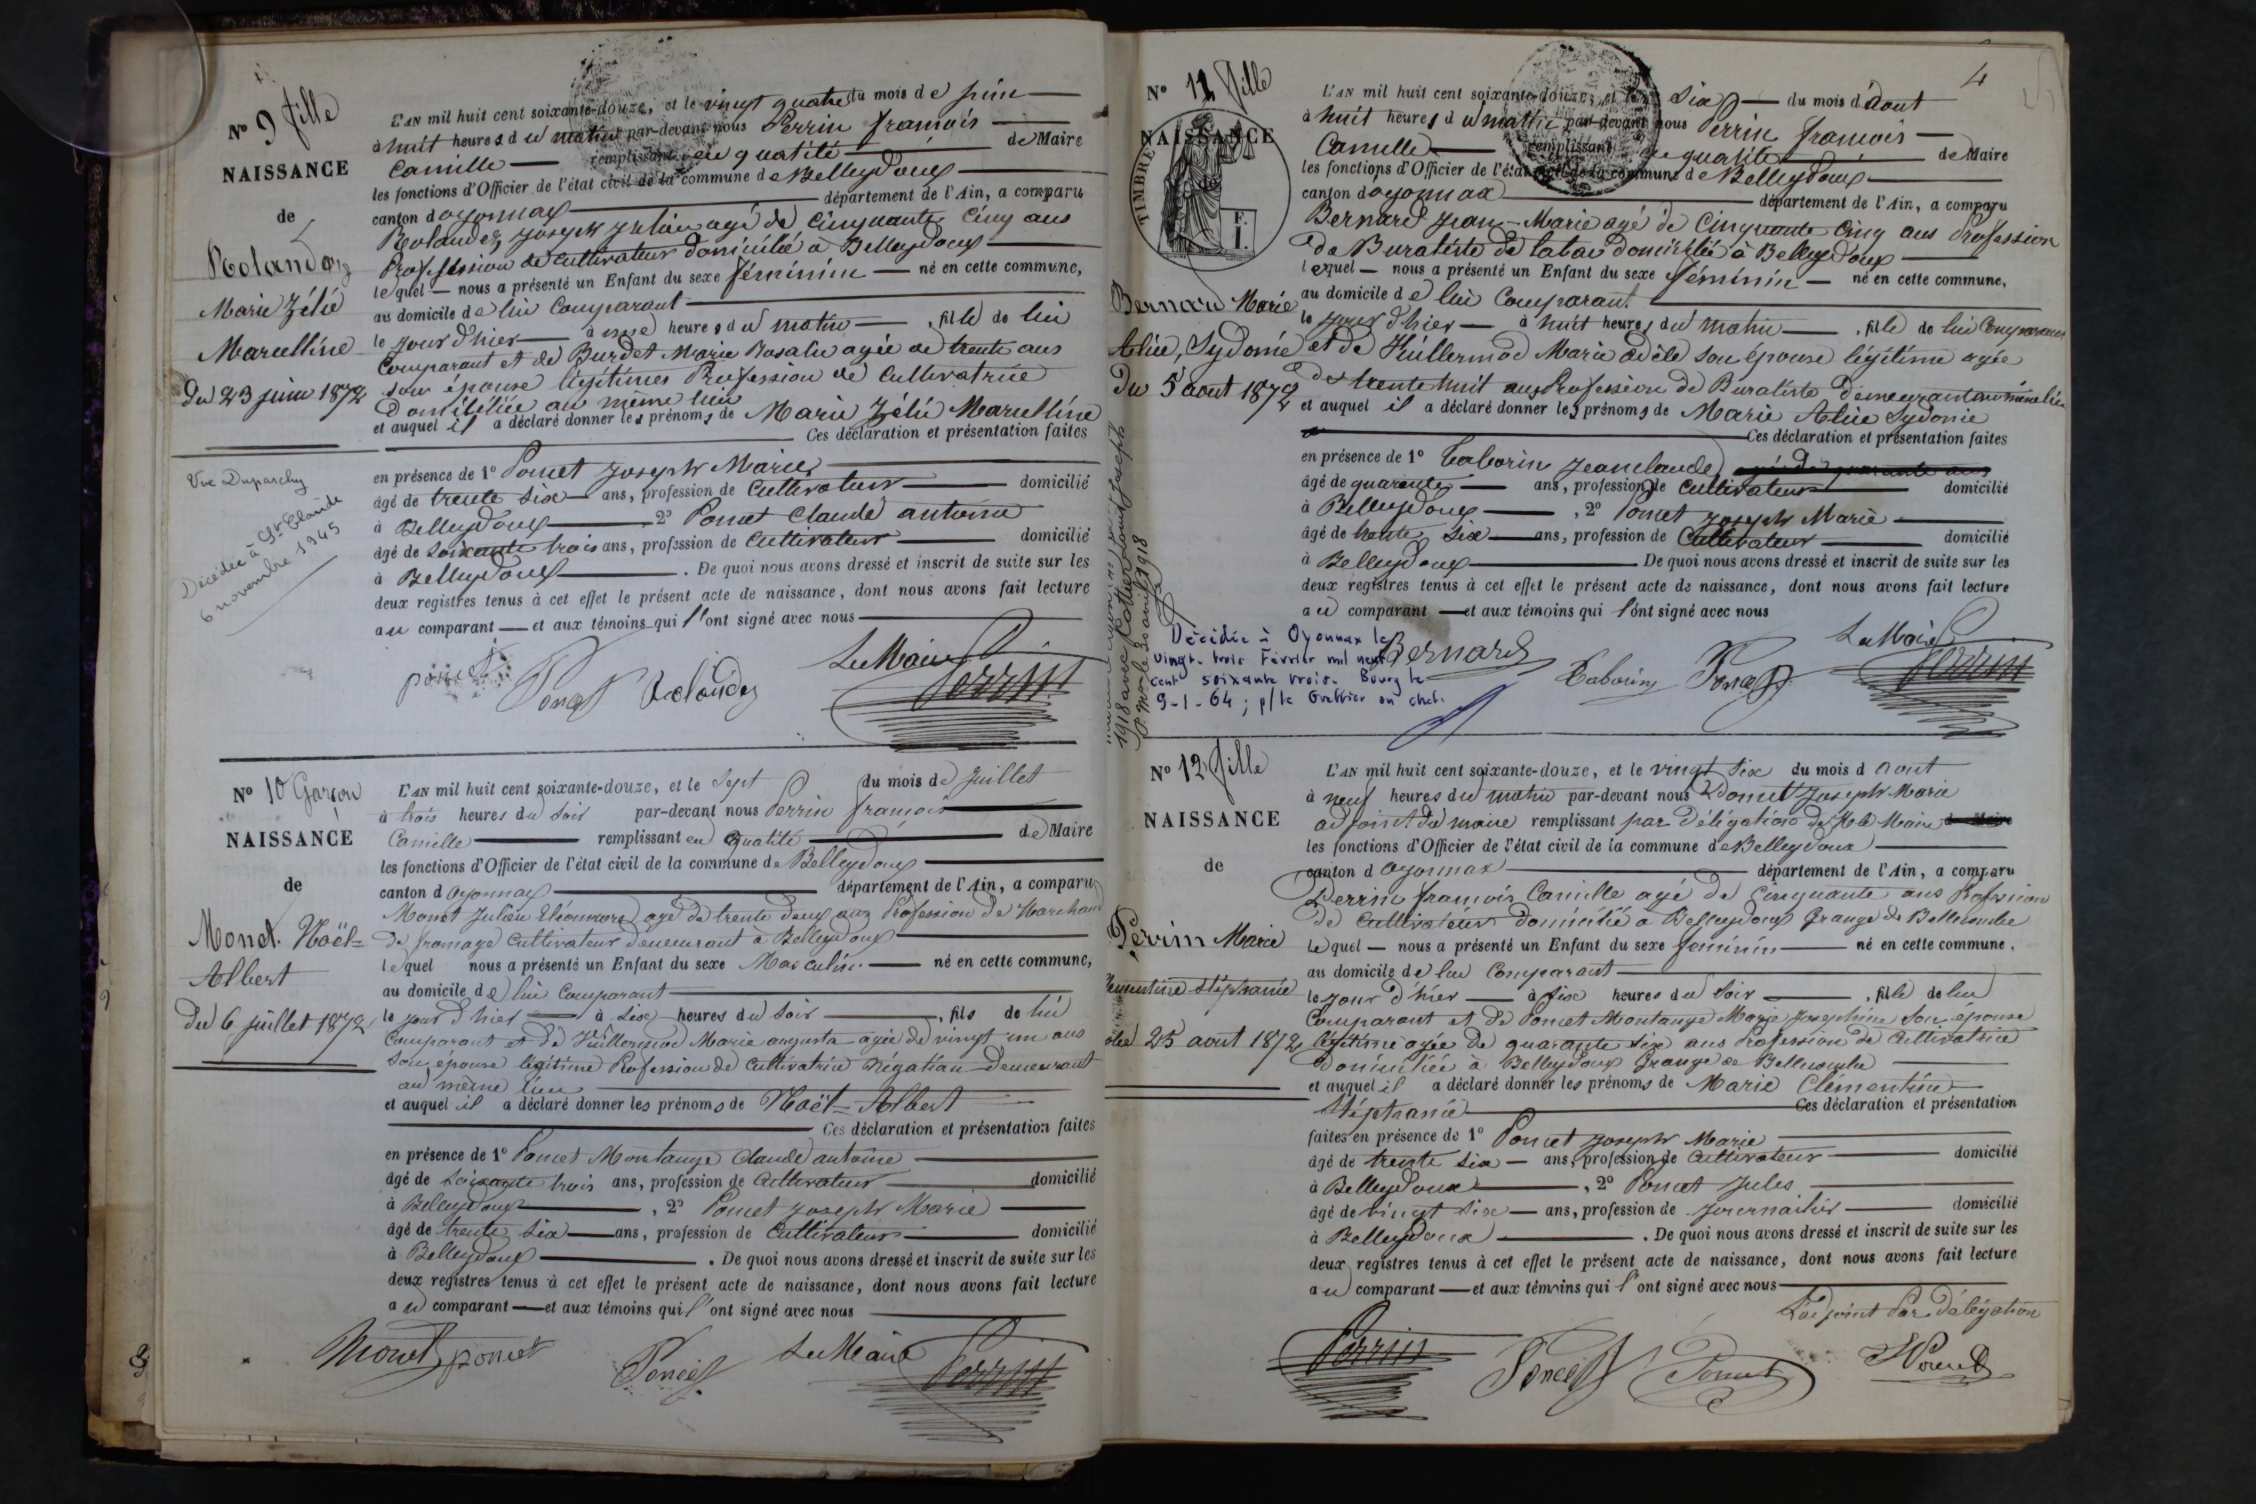 N° 9 fille
NAISSANCE
de
Rolandez
Marie Zélie
Marcelline
du 23 juin 1872
Vve Duparchy
Décédée à St Claude
6 novembre 1945
L'AN mil huit cent soixante-douze, et le vingt quatre du mois de juin
à huit heures du matin par-devant nous Perrin françois
Camille remplissant en qualité de Maire
les fonctions d'Officier de l'état civil de la commune de Belleydoux
canton d'oyonnax département de l'Ain, a comparu
Rolandez Joseph Julien agé de Cinquante Cinq ans
Profession de cultivateur domicilié à Belleydoux
lequel nous a présenté un Enfant du sexe féminin né en cette commune,
au domicile de lui Comparant
le jour d'hier à heures du matin, fille de lui
Comparant et de Burdet Marie Rosalie agée de trente ans
son épouse légitimes Profession de Cultivatrice
domiciliée au même lieu
et auquel il a déclaré donner les prénoms de Marie Zélie Marcelline
Ces déclaration et présentation faites
en présence de 1° Poncet Joseph Marie
âgé de trente six ans, profession de Cultivateur domicilié
à Belleydoux 2° Poncet Claude antoine
âgé de soixante trois ans, profession de Cultivateur domicilié
à Belleydoux. De quoi nous avons dressé et inscrit de suite sur les
deux registres tenus à cet effet le présent acte de naissance, dont nous avons fait lecture
au comparant et aux témoins qui l'ont signé avec nous
Le Maire
poncet Poncet Rolandez Perrin
N° 10 Garçon
NAISSANCE
de
Monet Noël=
Albert
du 6 juillet 1872
L'AN mil huit cent soixante-douze, et le sept du mois de Juillet
à trois heures du soir par-devant nous Perrin françois
Camille remplissant en qualité de Maire
les fonctions d'Officier de l'état civil de la commune de Belleydoux
canton d'oyonnax département de l'Ain, a comparu
Monet Julien agé de trente deux ans Profession de Marchand
de fromage Cultivateur demeurant à Belleydoux
lequel nous a présenté un Enfant du sexe Masculin né en cette commune,
au domicile de lui Comparant
le jour d'hier à six heures du soir, fils de lui
Comparant et de Vuillermoz Marie augusta agée de vingt un ans
son épouse légitime Profession de Cultivatrice Négatian demeurant
au même lieu
et auquel il a déclaré donner les prénoms de Noël=Albert
Ces déclaration et présentation faites
en présence de 1° Poncet Montange Claude antoine
âgé de soixante trois ans, profession de Cultivateur domicilié
à Belleydoux, 2° Poncet Joseph Marie
âgé de trente six ans, profession de Cultivateur domicilié
à Belleydoux. De quoi nous avons dressé et inscrit de suite sur les
deux registres tenus à cet effet le présent acte de naissance, dont nous avons fait lecture
au comparant et aux témoins qui l'ont signé avec nous
Monet poncet Poncet Le Maire Perrin
4
N° 11 fille
NAISSANCE
de
TIMBRE
F.
I.
Bernard Marie
Alice, Sydonie
Du 5 aout 1872
1918 avec Louis Joseph
avril 1918
Décédée à Oyonnax le
vingt-trois Février mil neuf
cent soixante trois. Bourg le
9-1-64; p/le Greffier en chef.
L'AN mil huit cent soixante-douze, et le Six du mois d'aout
à huit heures du matin par-devant nous Perrin françois
Camille remplissant en qualité de Maire
les fonctions d'Officier de l'état civil de la commune de Belleydoux
canton d'oyonnax département de l'Ain, a comparu
Bernard Jean-Marie agé de Cinquante Cinq ans Profession
de Buraliste de tabac domicilié à Belleydoux
lequel nous a présenté un Enfant du sexe féminin né en cette commune,
au domicile de lui Comparant
le jour d'hier à huit heures du matin, fille de lui Comparant
et de Vuillermoz Marie adèle son épouse légitime agée
de trente huit ans Profession de Buraliste demeurant au même lieu
et auquel il a déclaré donner les prénoms de Marie Alice Sydonie
Ces déclaration et présentation faites
en présence de 1° Taborin Jean claude
âgé de quarante ans, profession de Cultivateur domicilié
à Belleydoux, 2° Poncet Joseph Marie
âgé de trente six ans, profession de Cultivateur domicilié
à Belleydoux De quoi nous avons dressé et inscrit de suite sur les
deux registres tenus à cet effet le présent acte de naissance, dont nous avons fait lecture
au comparant et aux témoins qui l'ont signé avec nous
Le Maire
Bernard Taborin Poncet Perrin
N° 12 fille
NAISSANCE
de
Perrin Marie
Clementine Stéphanie
du 25 aout 1872
L'AN mil huit cent soixante-douze, et le vingt six du mois d'aout
à neuf heures du matin par-devant nous Poncet Joseph Marie
adjoint du maire remplissant par délégation de Mr le Maire
les fonctions d'Officier de l'état civil de la commune de Belleydoux
canton d'oyonnax département de l'Ain, a comparu
Perrin françois Camille agé de Cinquante ans Profession
de Cultivateur domicilié à Belleydoux Grange de Bellecombe
lequel nous a présenté un Enfant du sexe féminin né en cette commune,
au domicile de lui Comparant
le jour d'hier à six heures du soir, fille de lui
Comparant et de Poncet Montange Marie Josephine son épouse
légitime agée de quarante six ans Profession de Cultivatrice
domiciliée à Belleydoux Grange de Bellecombe
et auquel il a déclaré donner les prénoms de Marie Clémentine
Stéphanie Ces déclaration et présentation
faites en présence de 1° Poncet Joseph Marie
âgé de trente six ans, profession de Cultivateur domicilié
à Belleydoux, 2° Poncet Jules
âgé de vingt six ans, profession de journalier domicilié
à Belleydoux. De quoi nous avons dressé et inscrit de suite sur les
deux registres tenus à cet effet le présent acte de naissance, dont nous avons fait lecture
au comparant et aux témoins qui l'ont signé avec nous
L'adjoint Par Délégation
Perrin Poncet Poncet Poncet